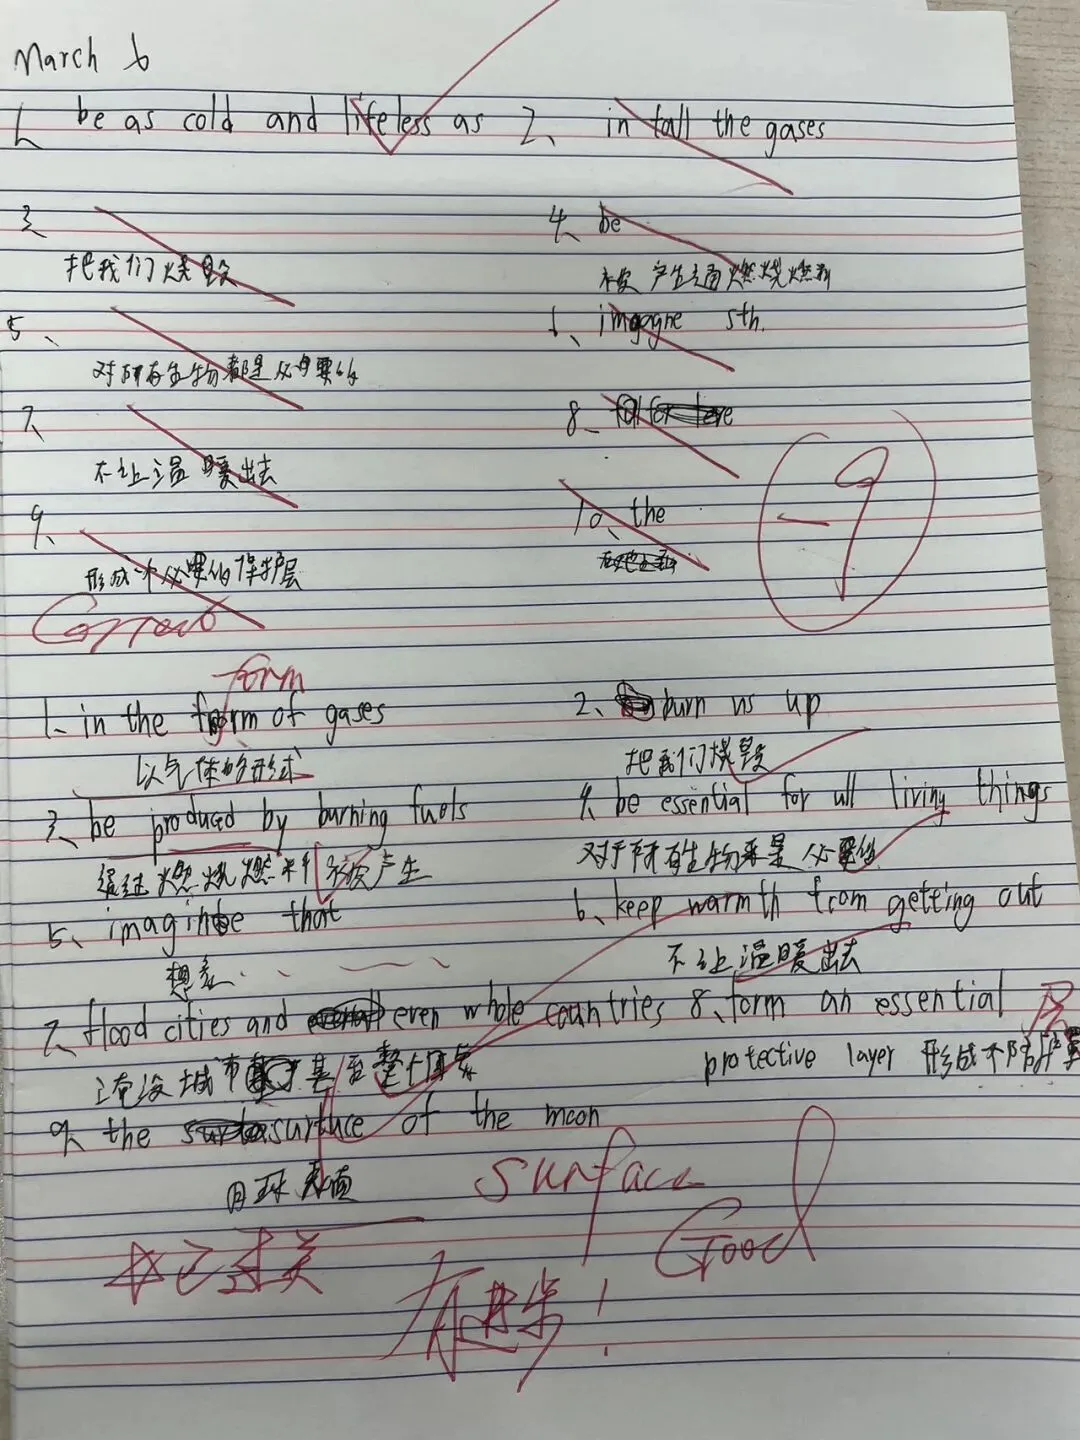 March 6
1. be as cold and lifeless as 2、 in fall the gases
3、 4、 be
把我们烧毁 被产生通燃烧燃料
5、 6、 imgagne sth.
对所有生物都是必要的
7、 8、
不让温暖出去
9、 10、the
形成个必要的保护层
-9
Correct
form
1、in the form of gases 2、burn us up
以气体的形式 把我们烧毁
3、be produced by burning fuels 4、be essential for all living things
通过燃烧燃料被产生 对于所有生物来是必要的
5、imagine that 6、keep warmth from getting out
想象 不让温暖出去
7、flood cities and even whole countries 8、form an essential
淹没城市甚至整个国家 protective layer 形成个防护层
9、the surface of the moon
月球表面
surface
Good
已过关
有进步!